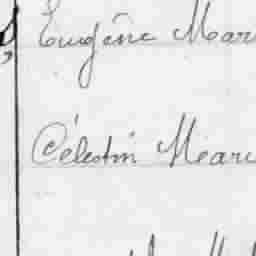 Eugène Mar
Célestin Mear